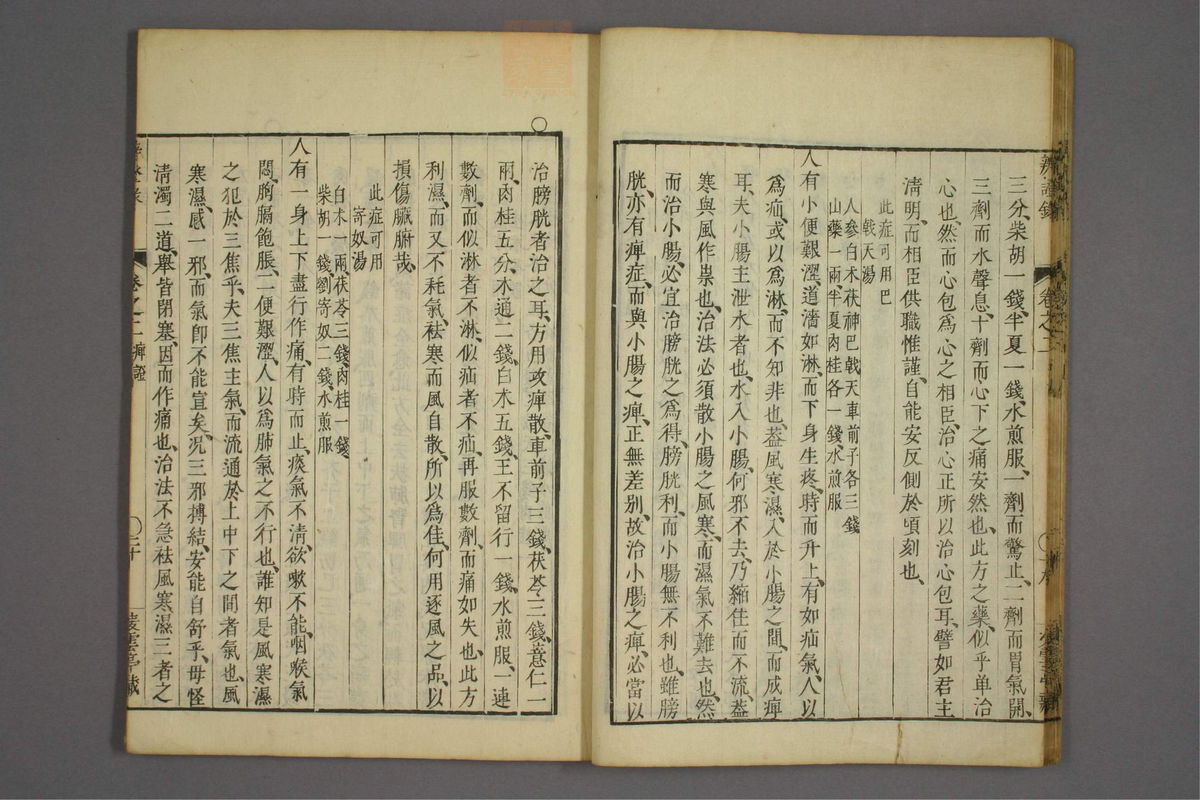 辨證錄 卷之二
三分、柴胡一錢、半夏一錢、水煎服、一劑而驚止、二劑而胃氣開、
三劑而水聲息、十劑而心下之痛安然也、此方之藥、似乎单治
心也、然而心包爲心之相臣、治心正所以治心包耳、譬如君主
淸明、而相臣供職惟謹、自能安反側於頃刻也、
此症可用巴
戟天湯
人參白朮茯神巴戟天車前子各三錢
山藥一兩、半夏肉桂各一錢、水煎服
人有小便艱澀、道濇如淋、而下身生疼、時而升上、有如疝氣、人以
爲疝、或以爲淋、而不知非也、葢風寒濕、入於小腸之間、而成痺
耳、夫小腸主泄水者也、水入小腸、何邪不去、乃縮住而不流、葢
寒與風作祟也、治法必須散小腸之風寒、而濕氣不難去也、然
而治小腸、必宜治膀胱之爲得、膀胱利、而小腸無不利也、雖膀
胱、亦有痺症、而與小腸之痺、正無差別、故治小腸之痺、必當以
治膀胱者治之耳、方用攻痺散、車前子三錢、茯苓三錢、薏仁一
兩、肉桂五分、木通二錢、白朮五錢、王不留行一錢、水煎服、一連
數劑、而似淋者不淋、似疝者不疝、再服數劑、而痛如失也、此方
利濕、而又不秏氣、袪寒而風自散、所以爲佳、何用逐風之品、以
損傷臟腑哉、
此症可用
寄奴湯
白朮一兩、茯苓三錢、肉桂一錢、
柴胡一錢、劉寄奴二錢、水煎服
人有一身上下盡行作痛、有時而止、痰氣不淸、欲嗽不能、咽喉氣
悶、胸膈飽脹、二便艱澀、人以爲肺氣之不行也、誰知是風寒濕
之犯於三焦乎、夫三焦主氣、而流通於上中下之間者氣也、風
寒濕、感一邪、而氣卽不能宣矣、况三邪搏結、安能自舒乎、毋怪
淸濁二道、舉皆閉塞、因而作痛也、治法不急袪風寒濕三者之
卷之二 痺證 二十